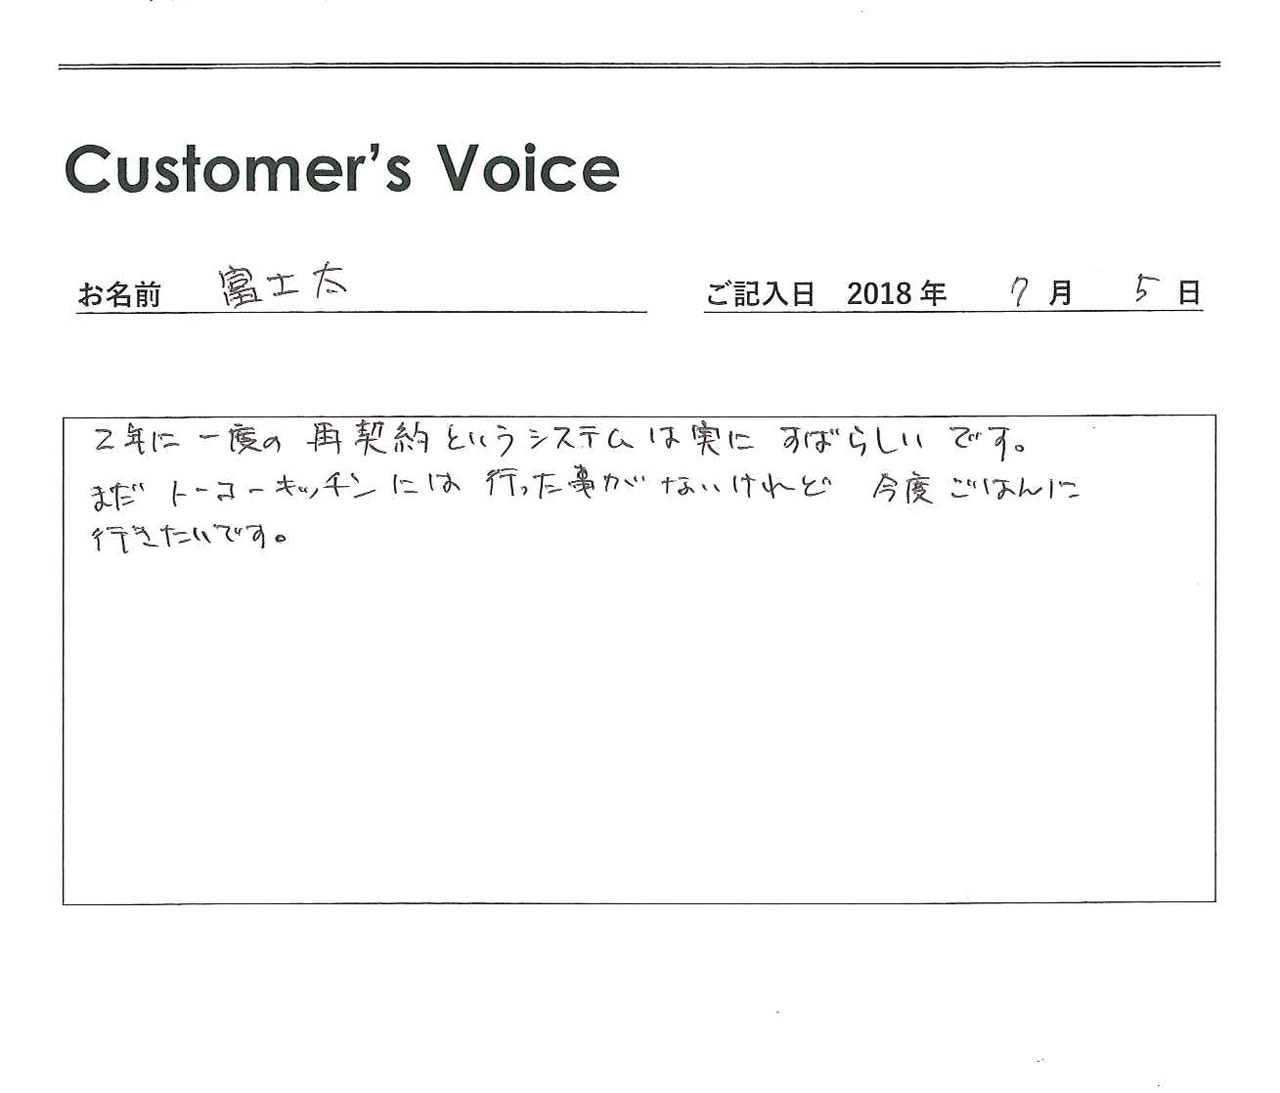 Customer's Voice
お名前 富士太
ご記入日 2018年 7月 5日
2年に一度の再契約というシステムは実にすばらしいです。
まだトーコーキッチンには行った事がないけれど 今度ごはんに
行きたいです。